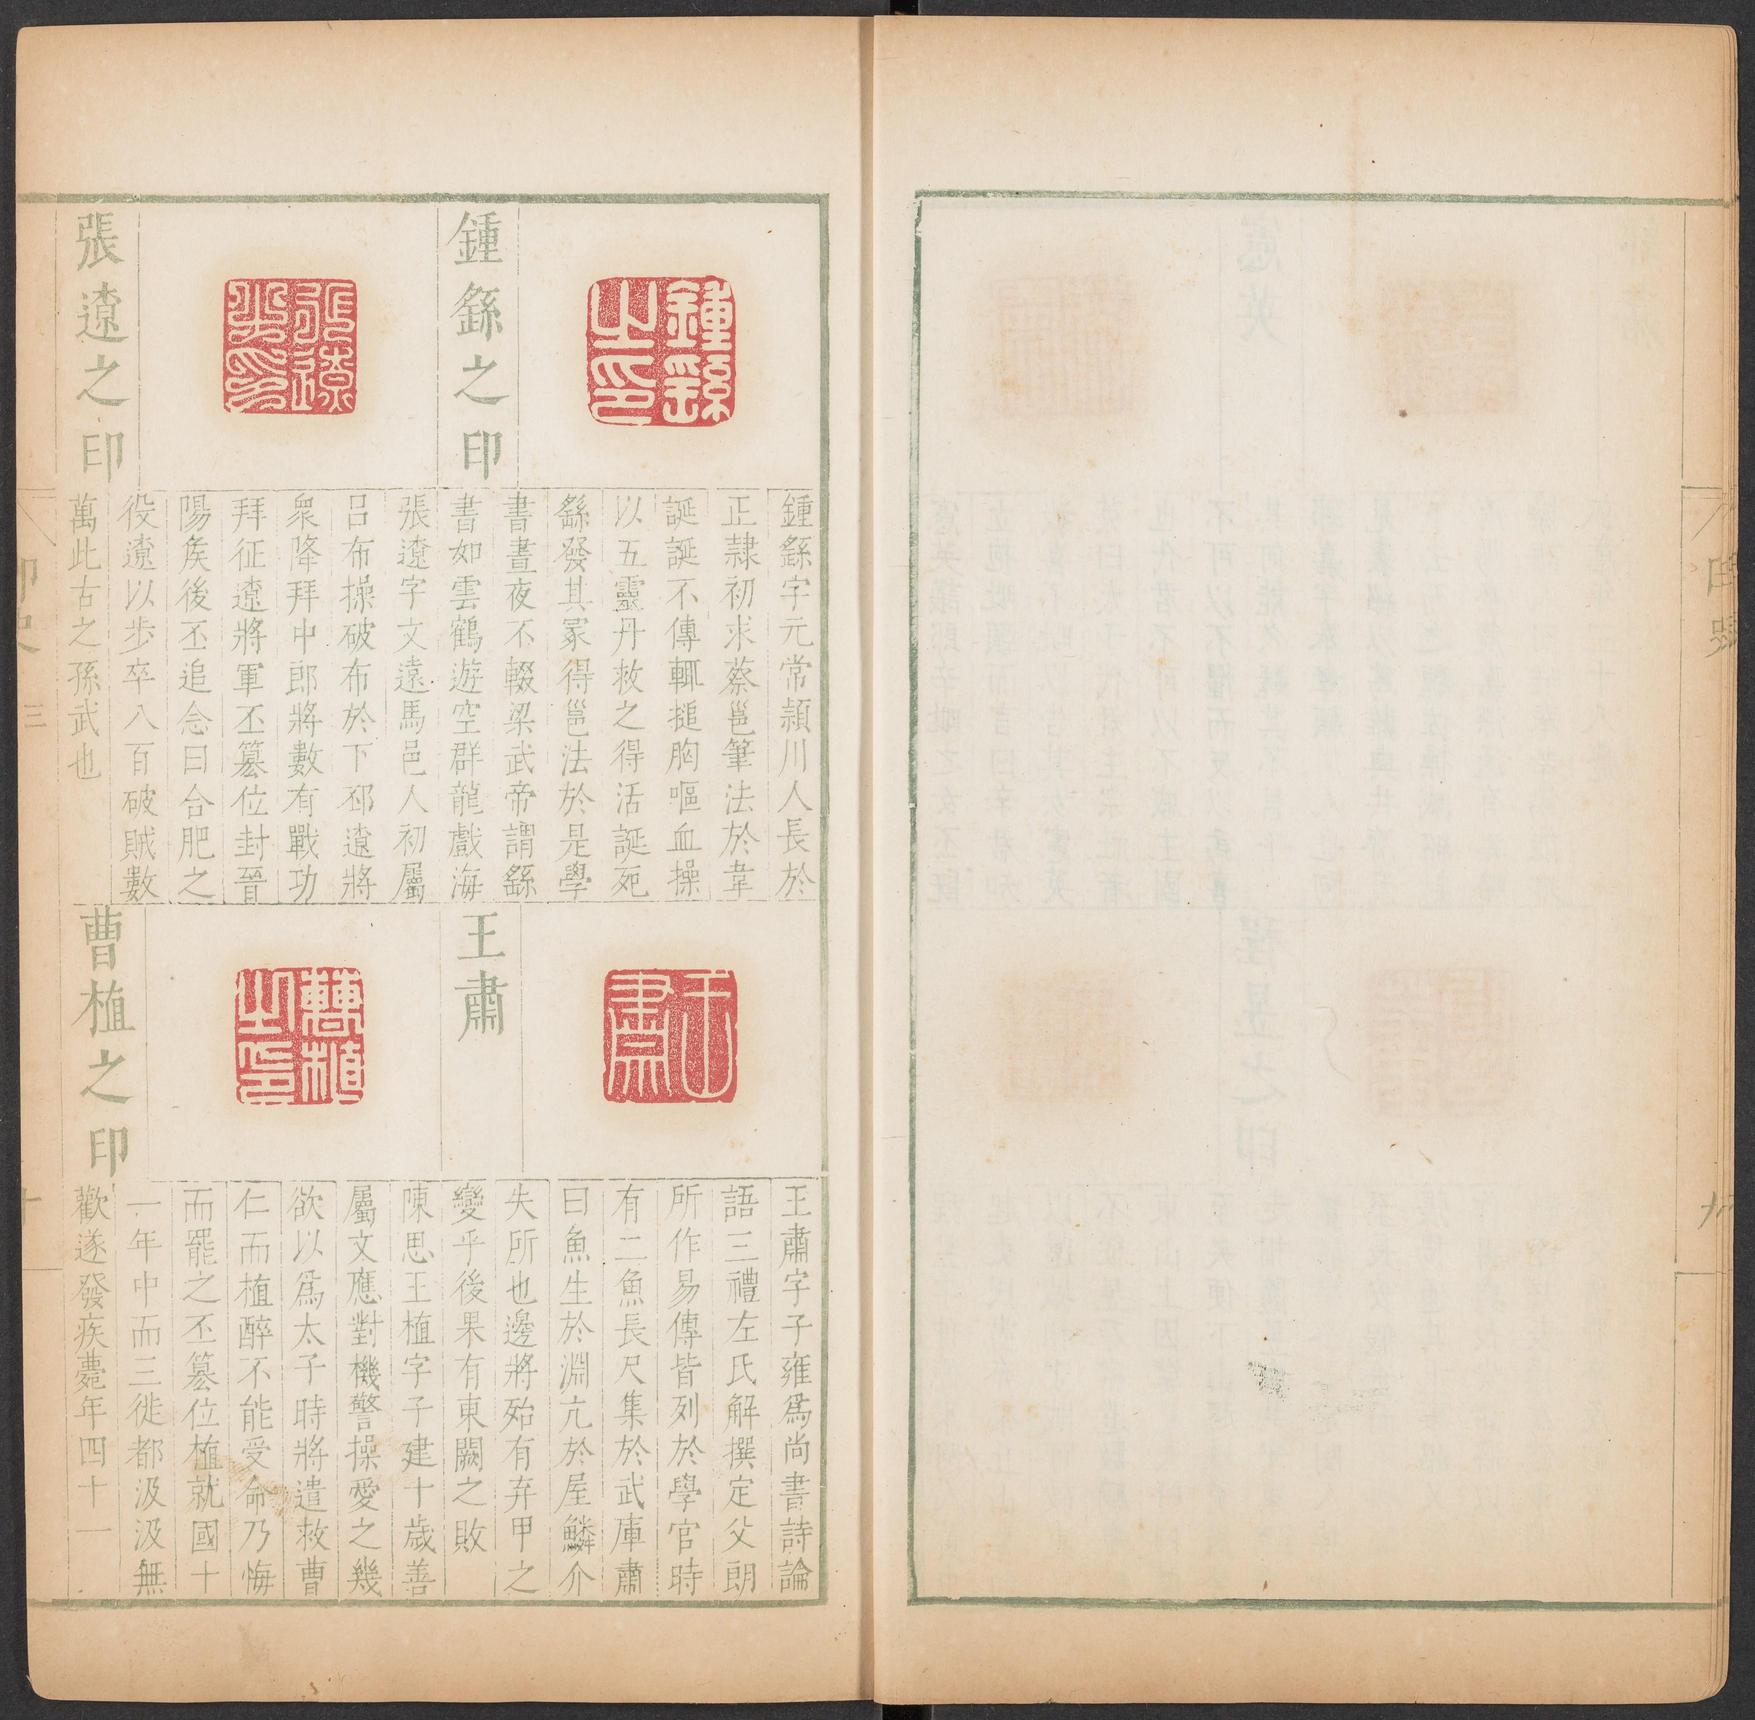 鍾繇之印
張遼之印
鍾繇字元常潁川人長於
正隷初求蔡邕筆法於韋
誕誕不傳輒搥胸嘔血操
以五靈丹救之得活誕死
繇發其冢得邕法於是學
書晝夜不輟梁武帝謂繇
書如雲鶴遊空群龍戲海
張遼字文遠馬邑人初屬
呂布操破布於下邳遼將
衆降拜中郎將數有戰功
拜征遼將軍丕簒位封晉
陽矦後丕追念曰合肥之
役遼以步卒八百破賊數
萬此古之孫武也
王肅
曹植之印
王肅字子雍爲尚書詩論
語三禮左氏解撰定父朗
所作易傳皆列於學官時
有二魚長尺集於武庫肅
曰魚生於淵亢於屋鱗介
失所也邊將殆有弃甲之
變乎後果有東闕之敗
陳思王植字子建十歲善
屬文應對機警操愛之幾
欲以爲太子時將遣救曹
仁而植醉不能受命乃悔
而罷之丕簒位植就國十
一年中而三徙都汲汲無
歡遂發疾薨年四十一